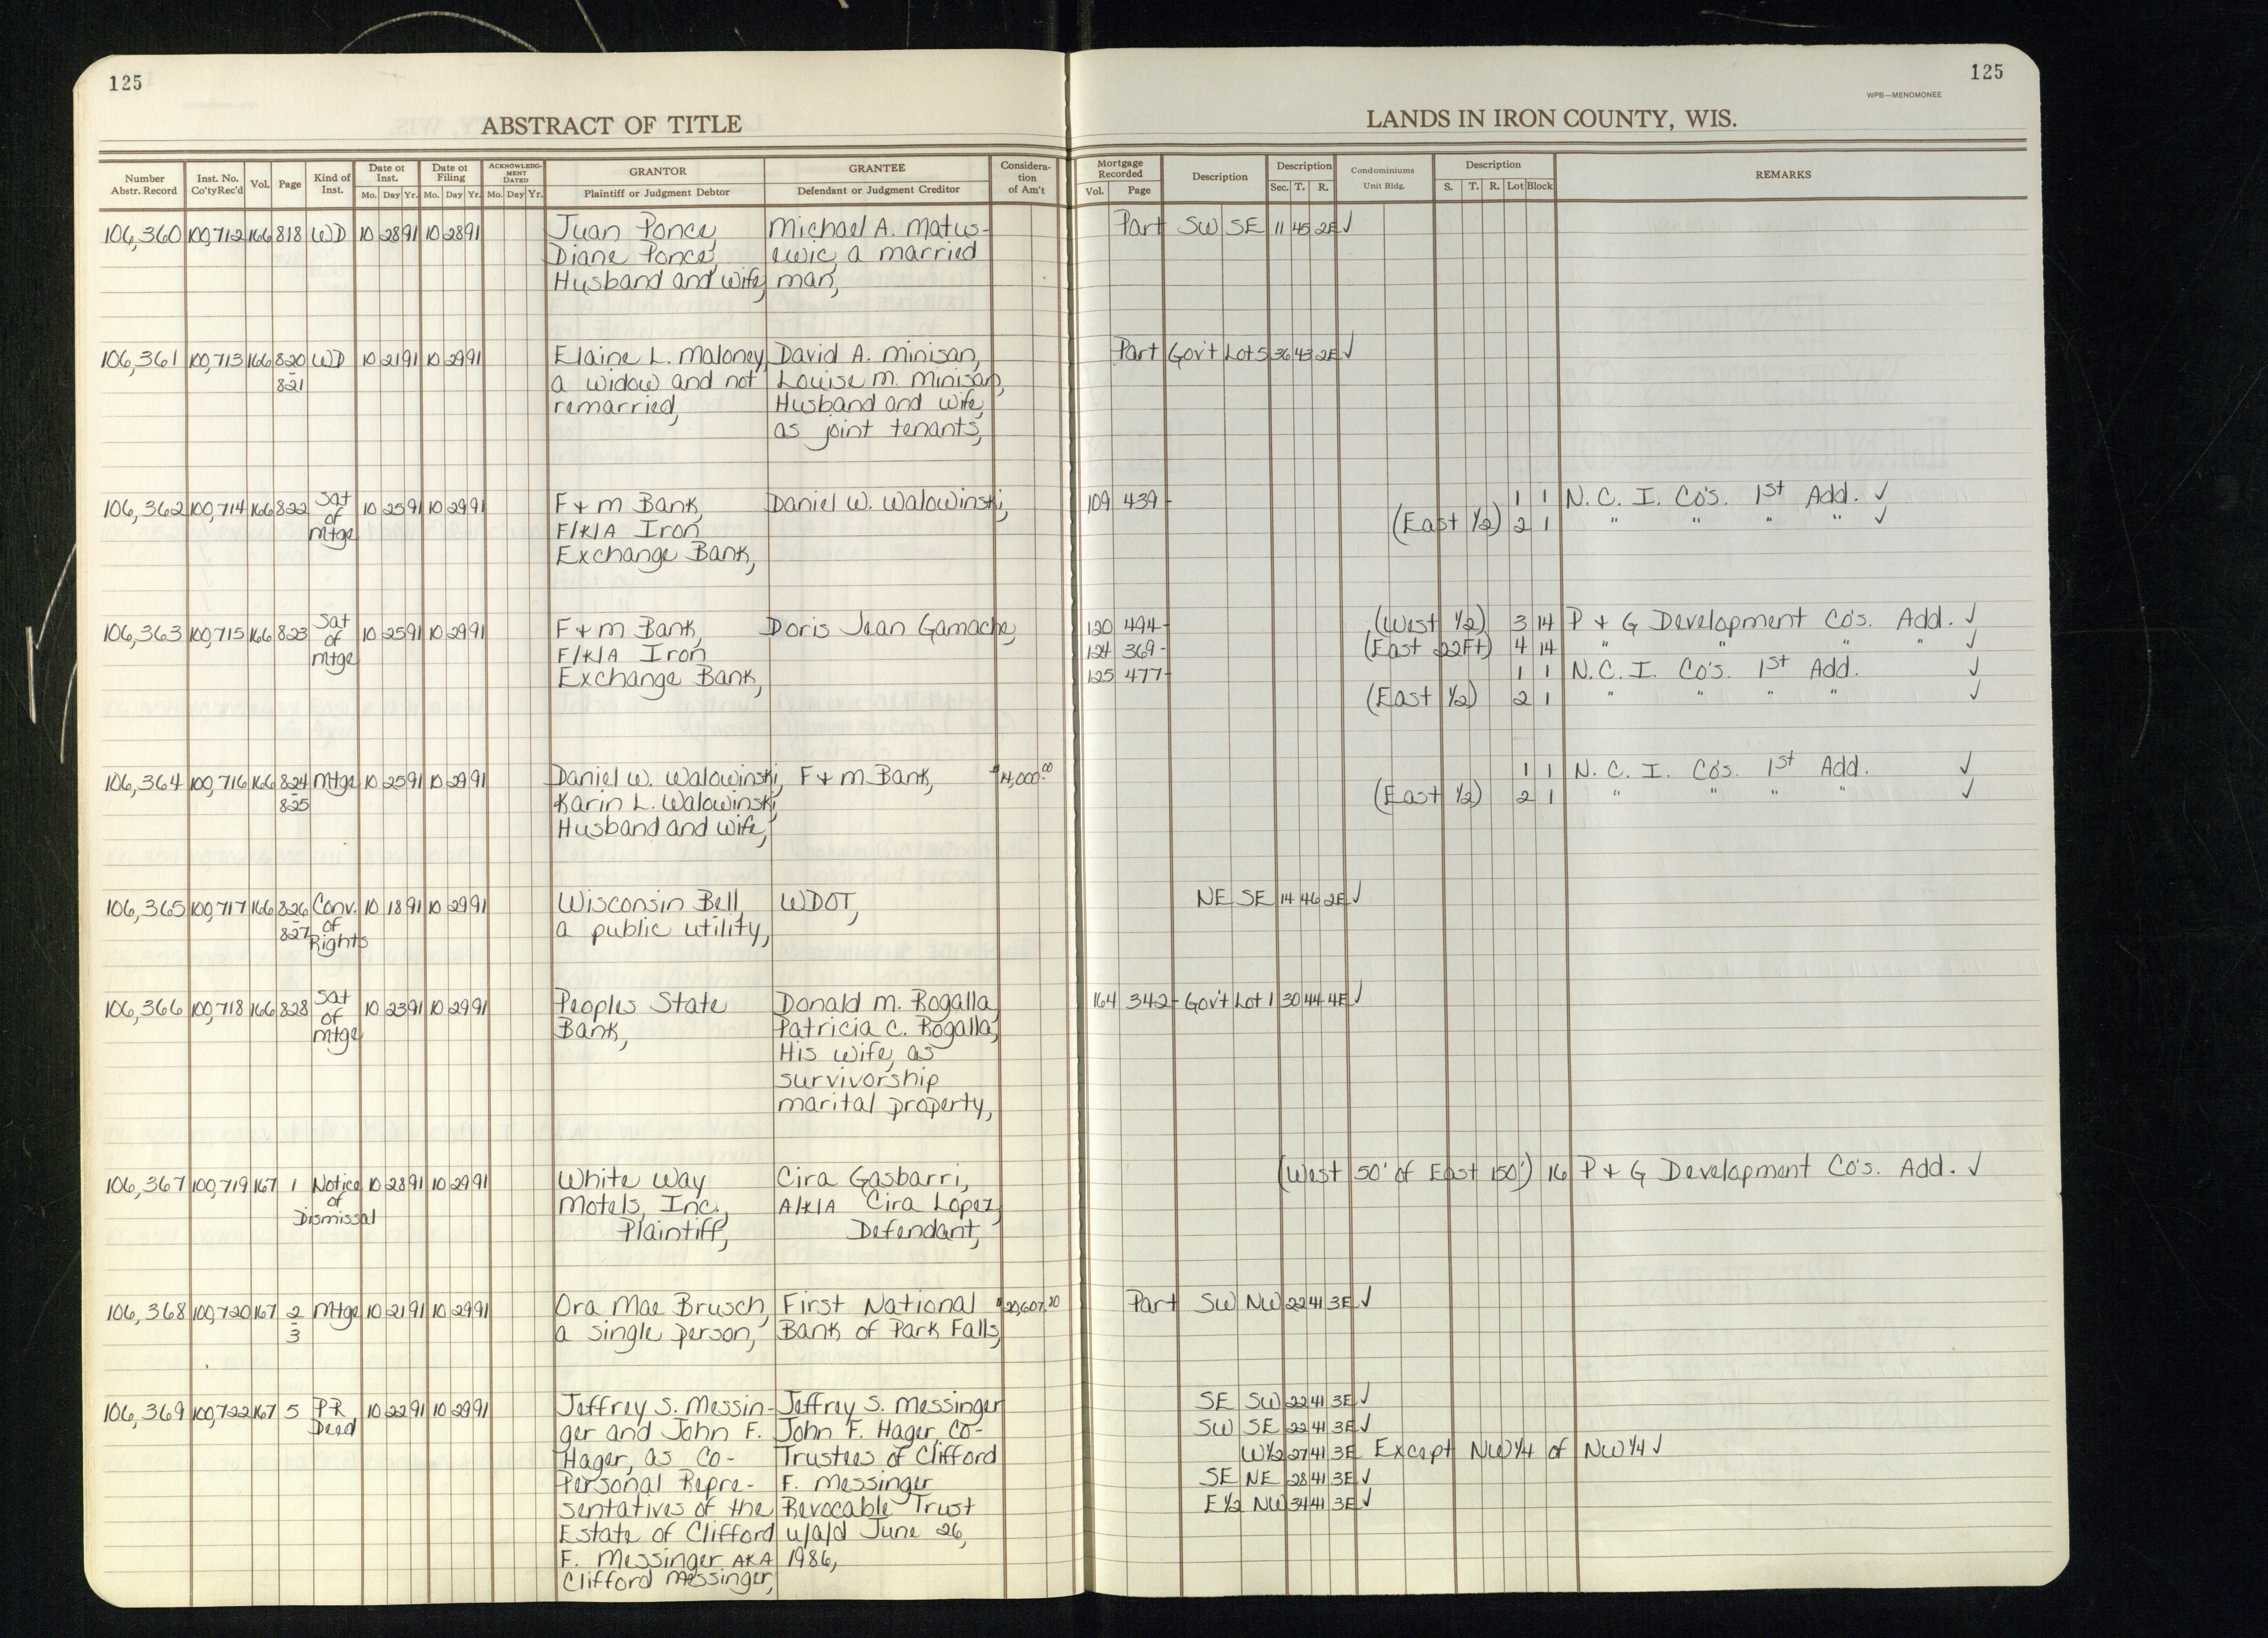 125
125
WPB—MENOMONEE
ABSTRACT OF TITLE
LANDS IN IRON COUNTY, WIS.
Number Abstr. Record | Inst. No. Co'tyRec'd | Vol. | Page | Kind of Inst. | Date of Inst. Mo. Day Yr. | Date of Filing Mo. Day Yr. | ACKNOWLEDGMENT DATED Mo. Day Yr. | GRANTOR Plaintiff or Judgment Debtor | GRANTEE Defendant or Judgment Creditor | Consideration of Am't | Mortgage Recorded Vol. Page | Description | Description Sec. T. R. | Condominiums Unit Bldg. | Description S. T. R. Lot Block | REMARKS
106,360 100,712 166 818 WD 10 28 91 10 28 91 Juan Ponce, Michael A. Matus- Part SW SE 11 45 2E ✓
Diane Ponce, ewic, a married
Husband and wife, man,
106,361 100,713 166 820 WD 10 21 91 10 29 91 Elaine L. Maloney, David A. Minisan, Part Gov't Lot 5 36 43 2E ✓
- 821 a widow and not Louise M. Minisan,
remarried, Husband and wife,
as joint tenants,
106,362 100,714 166 822 Sat of Mtge 10 25 91 10 29 91 F & M Bank, Daniel W. Walowinski, 109 439- 1 1 N. C. I. Co's. 1st Add. ✓
F/K/A Iron (East 1/2) 2 1 " " " " ✓
Exchange Bank,
106,363 100,715 166 823 Sat of Mtge 10 25 91 10 29 91 F & M Bank, Doris Jean Gamache, 120 494- (West 1/2) 3 14 P & G Development Co's. Add. ✓
F/K/A Iron 124 369- (East 22Ft) 4 14 " " " " ✓
Exchange Bank, 125 477- 1 1 N. C. I. Co's. 1st Add. ✓
(East 1/2) 2 1 " " " " ✓
106,364 100,716 166 824 Mtge 10 25 91 10 29 91 Daniel W. Walowinski, F & M Bank, $14,000.00 1 1 N. C. I. Co's. 1st Add. ✓
- 825 Karin L. Walowinski, (East 1/2) 2 1 " " " " ✓
Husband and wife,
106,365 100,717 166 826 Conv. of Rights 10 18 91 10 29 91 Wisconsin Bell, WDOT, NE SE 14 46 2E ✓
- 827 a public utility,
106,366 100,718 166 828 Sat of Mtge 10 23 91 10 29 91 Peoples State Donald M. Rogalla, 164 342- Gov't Lot 1 30 44 4E ✓
Bank, Patricia C. Rogalla,
His wife, as
survivorship
marital property,
106,367 100,719 167 1 Notice of Dismissal 10 28 91 10 29 91 White Way Cira Gasbarri, (West 50' of East 150') 16 P & G Development Co's. Add. ✓
Motels, Inc., A/K/A Cira Lopez,
Plaintiff, Defendant,
106,368 100,720 167 2 Mtge 10 21 91 10 29 91 Ora Mae Brusch, First National $20,607.20 Part SW NW 22 41 3E ✓
- 3 a single person, Bank of Park Falls,
106,369 100,722 167 5 PR Deed 10 22 91 10 29 91 Jeffrey S. Messin- Jeffrey S. Messinger SE SW 22 41 3E ✓
ger and John F. John F. Hager, Co- SW SE 22 41 3E ✓
Hager, as Co- Trustees of Clifford W1/2 27 41 3E Except NW1/4 of NW1/4 ✓
Personal Repre- F. Messinger SE NE 28 41 3E ✓
sentatives of the Revocable Trust E1/2 NW 34 41 3E ✓
Estate of Clifford u/a/d June 26,
F. Messinger AKA 1986,
Clifford Messinger,